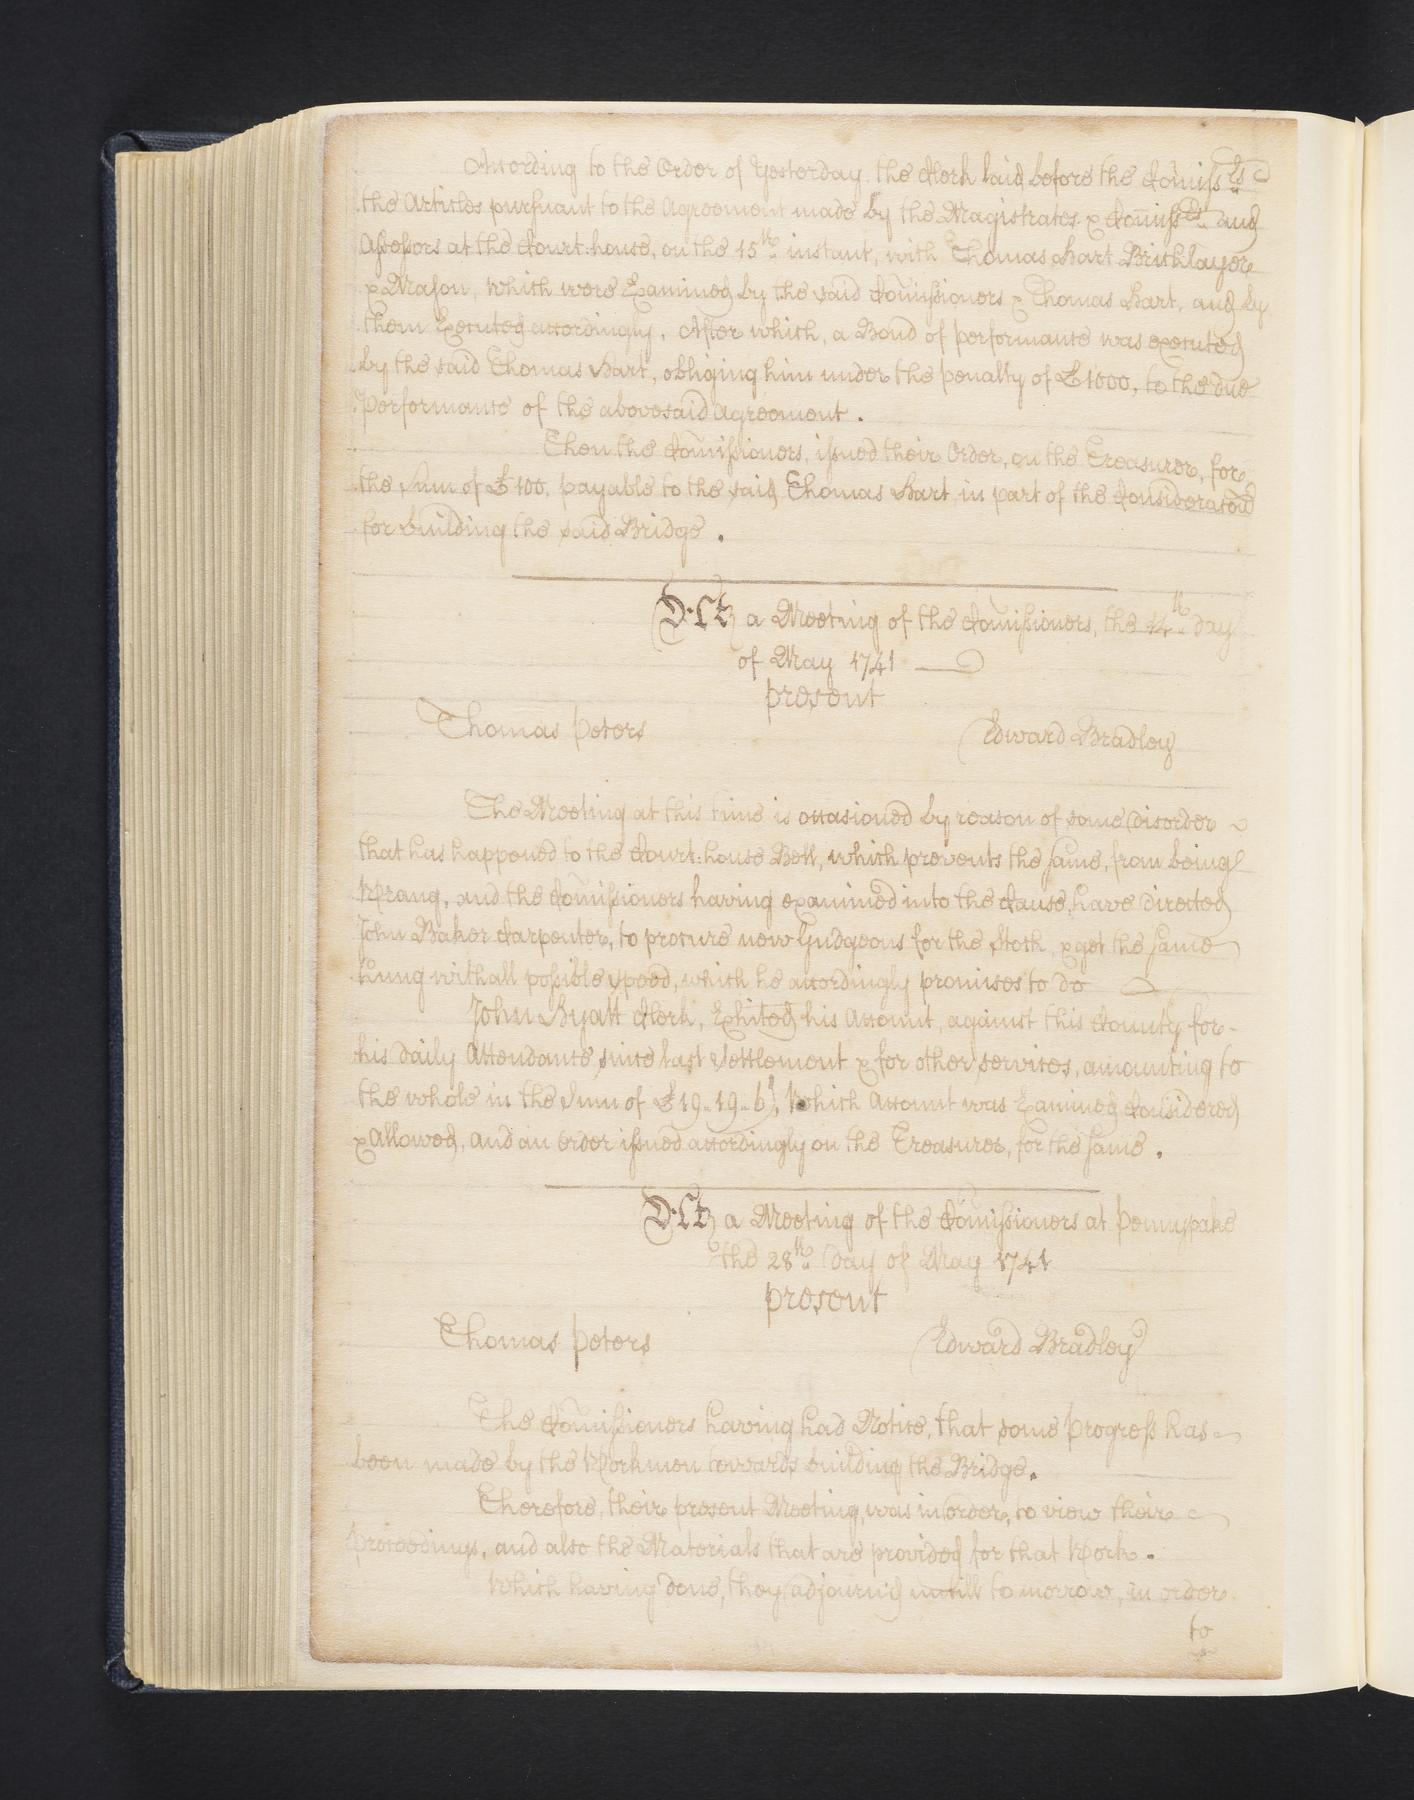 According to the Order of Yesterday, the Clerk laid before the Comiss.rs
the Articles pursuant to the Agreement made by the Magistrates & Comiss.rs and
Assessors at the Court-house, on the 15th instant, with Thomas Hart Bricklayer
& Mason, which were Examined by the said Comissioners & Thomas Hart, and by
them Executed accordingly. After which, a Bond of performance was executed
by the said Thomas Hart, obliging him under the penalty of £1000, to the due
Performance of the abovesaid Agreement.
Then the Comissioners, issued their Order, on the Treasurer, for
the Sum of £100, payable to the said Thomas Hart, in part of the Consideration
for building the said Bridge.
At a Meeting of the Comissioners, the 14th day
of May 1741
present
Thomas Peters Edward Bradley
The Meeting at this time is occasioned by reason of some disorder
that has happened to the Court-house Bell, which prevents the same, from being
Wrang, and the Comissioners having examined into the Cause, have directed
John Baker Carpenter, to procure new Gudgeons for the Stock, & get the same
hung with all possible speed, which he accordingly promises to do
John Hyatt Clerk, Exhited his Account, against this County for
his daily Attendance since last Settlement & for other services, amounting to
the whole in the Sum of £19..19..6, Which Account was Examined Considered
& Allowed, and an order issued accordingly on the Treasurer, for the same.
At a Meeting of the Comissioners at Pennypake
the 28th Day of May 1741
present
Thomas Peters Edward Bradley
The Comissioners having had Notice, that some Progress has
been made by the Workmen towards building the Bridge.
Therefore, their present Meeting, was in order, to view their
proceedings, and also the Materials that are provided for that Work.
Which having done, they adjourn'd untill to morrow, in order
to